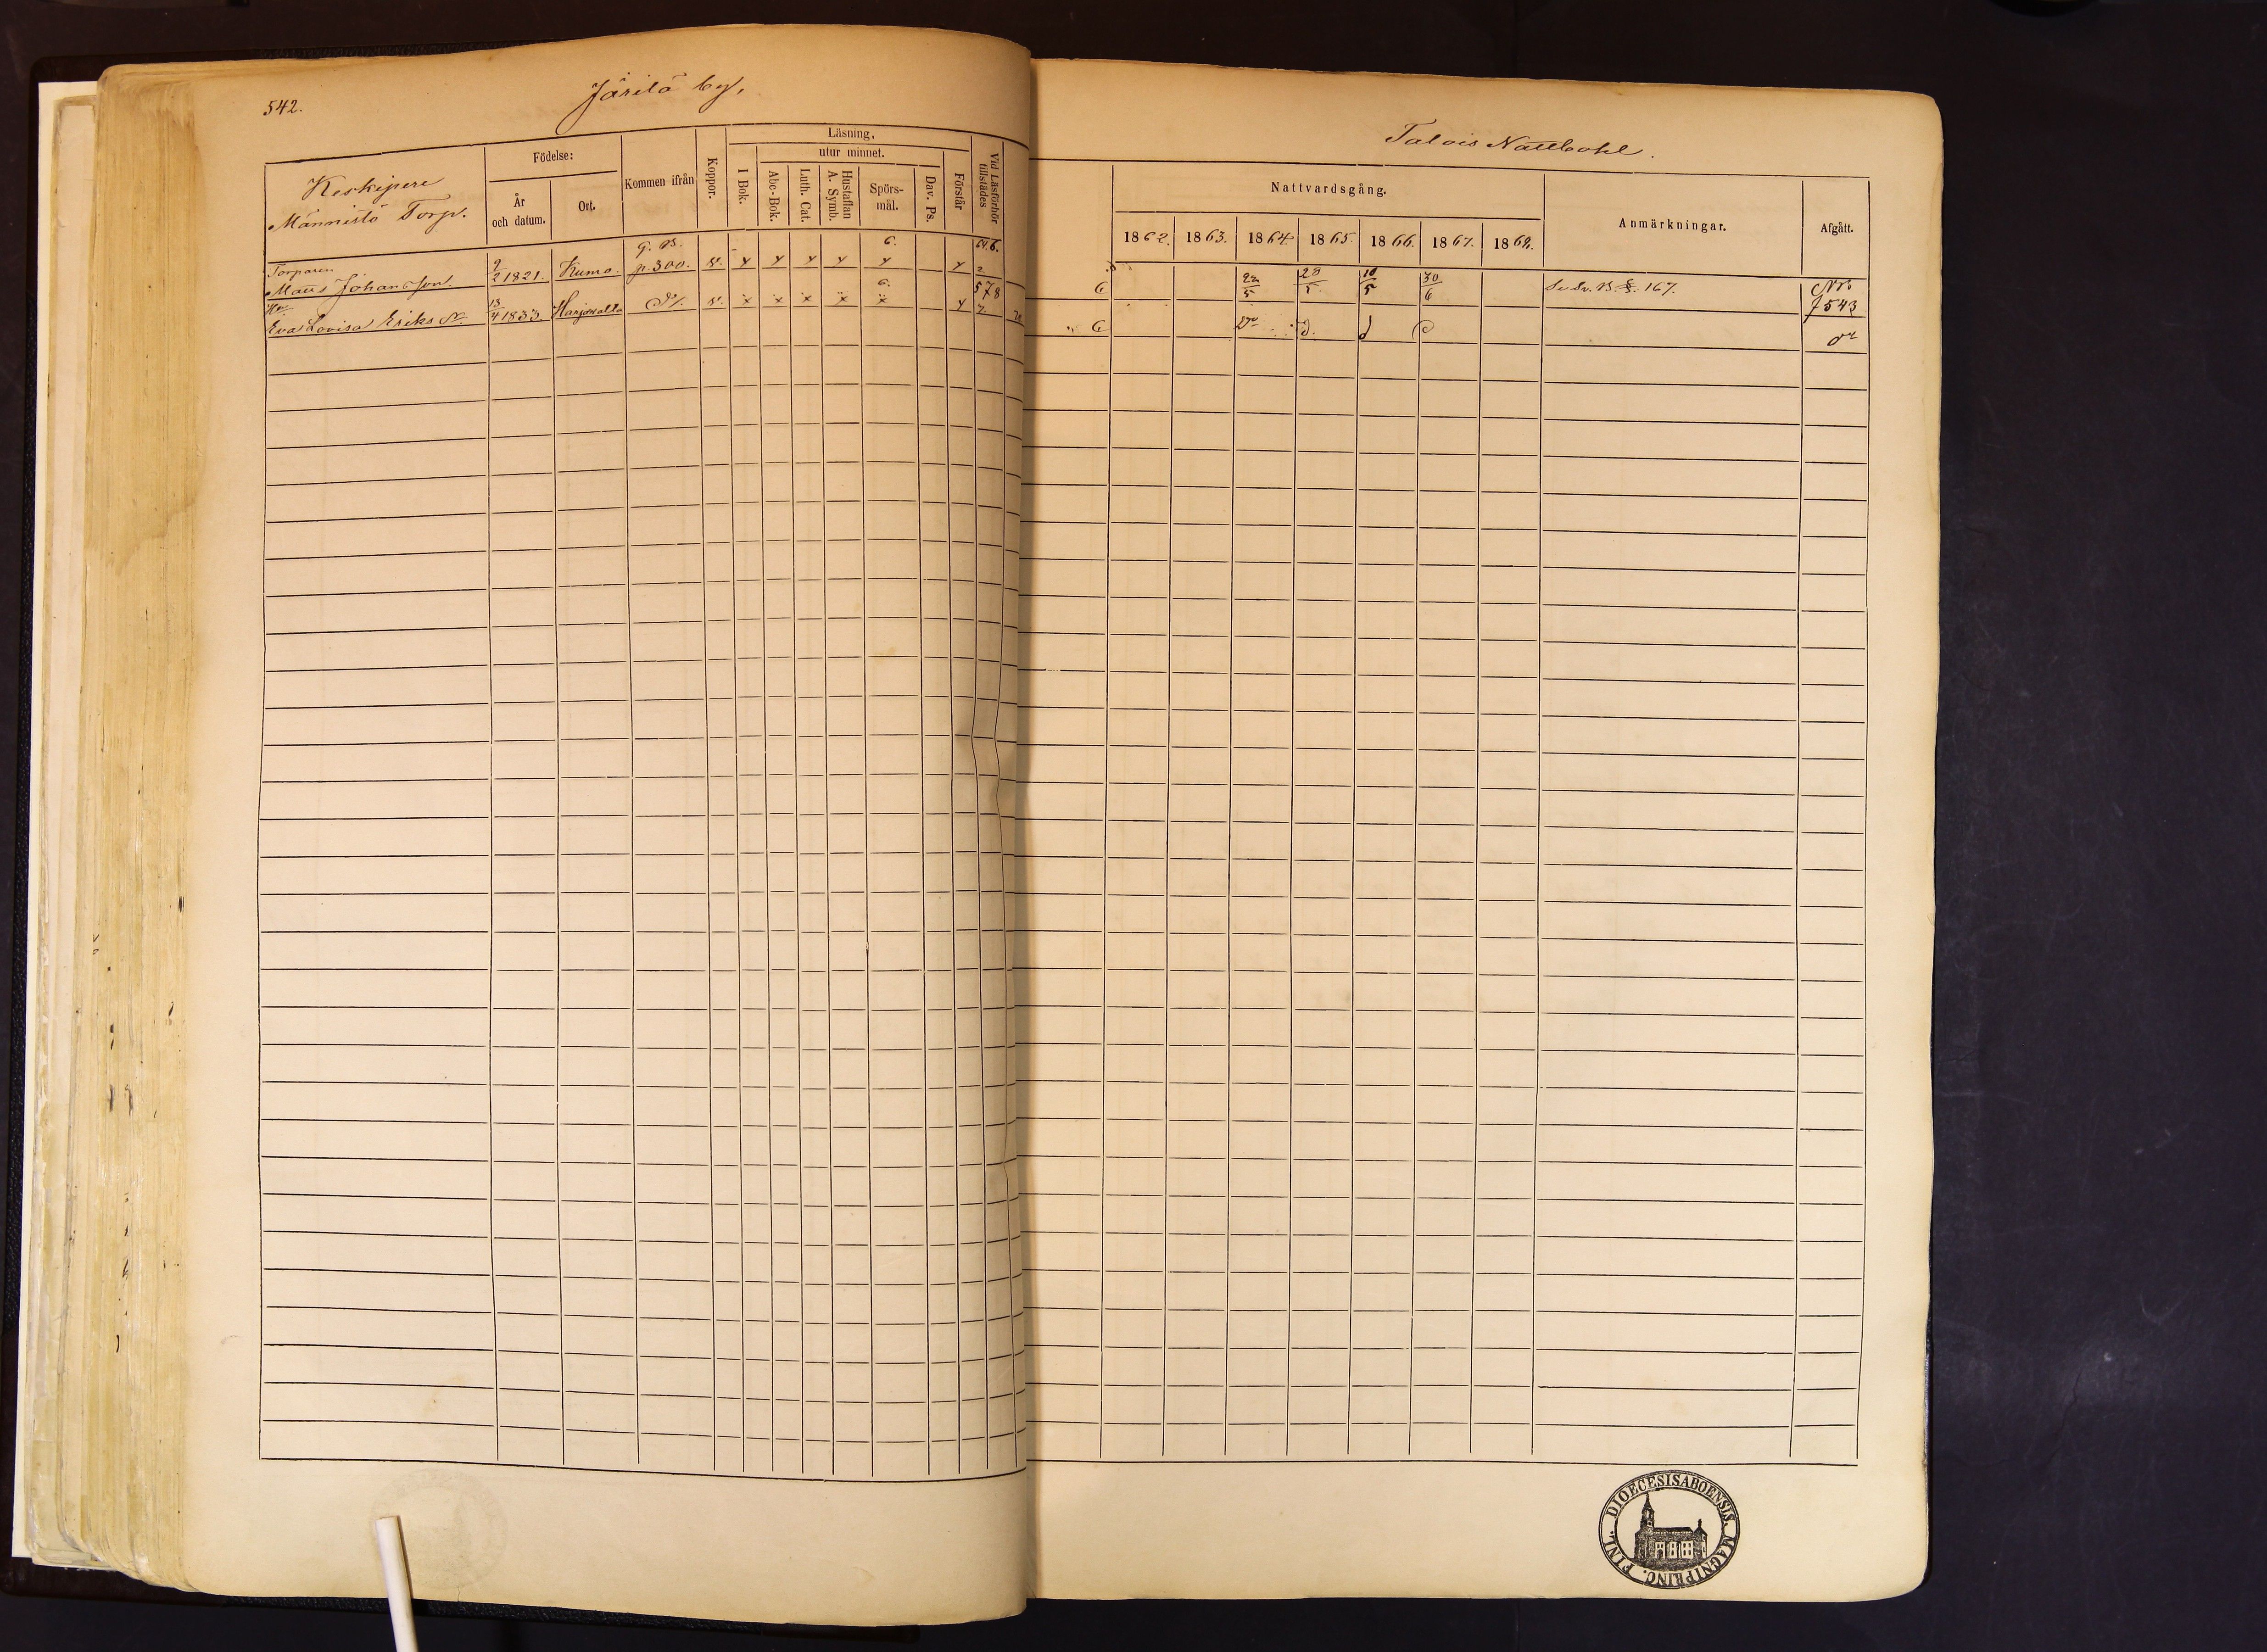 542.
Järilä by.
Talois Nattbohl.
Keskipere
Männistö Torp.
Födelse:
År och datum.
Ort.
Kommen ifrån
Koppor.
Läsning,
I Bok.
utur minnet.
Abc-Bok.
Luth. Cat.
Hustaflan A. Symb.
Spörsmål.
Dav. Ps.
Förstår
Vid Läsförhör tillstädes
Nattvardsgång.
1862. 1863. 1864 1865. 1866. 1867. 1868.
Anmärkningar.
Afgått.
Torparen
Matts Johansson 9/2 1821. Kumo. G. B. p. 300. 6. 578 22/5 28/5 10/5 30/6 167. 543
Hu
Eva Lovisa Eriks 13/4 1833. Harjawalta 6. 7. Do d d
DIOECESIS ABOENSIS. MAGNI PRINC. FINL.